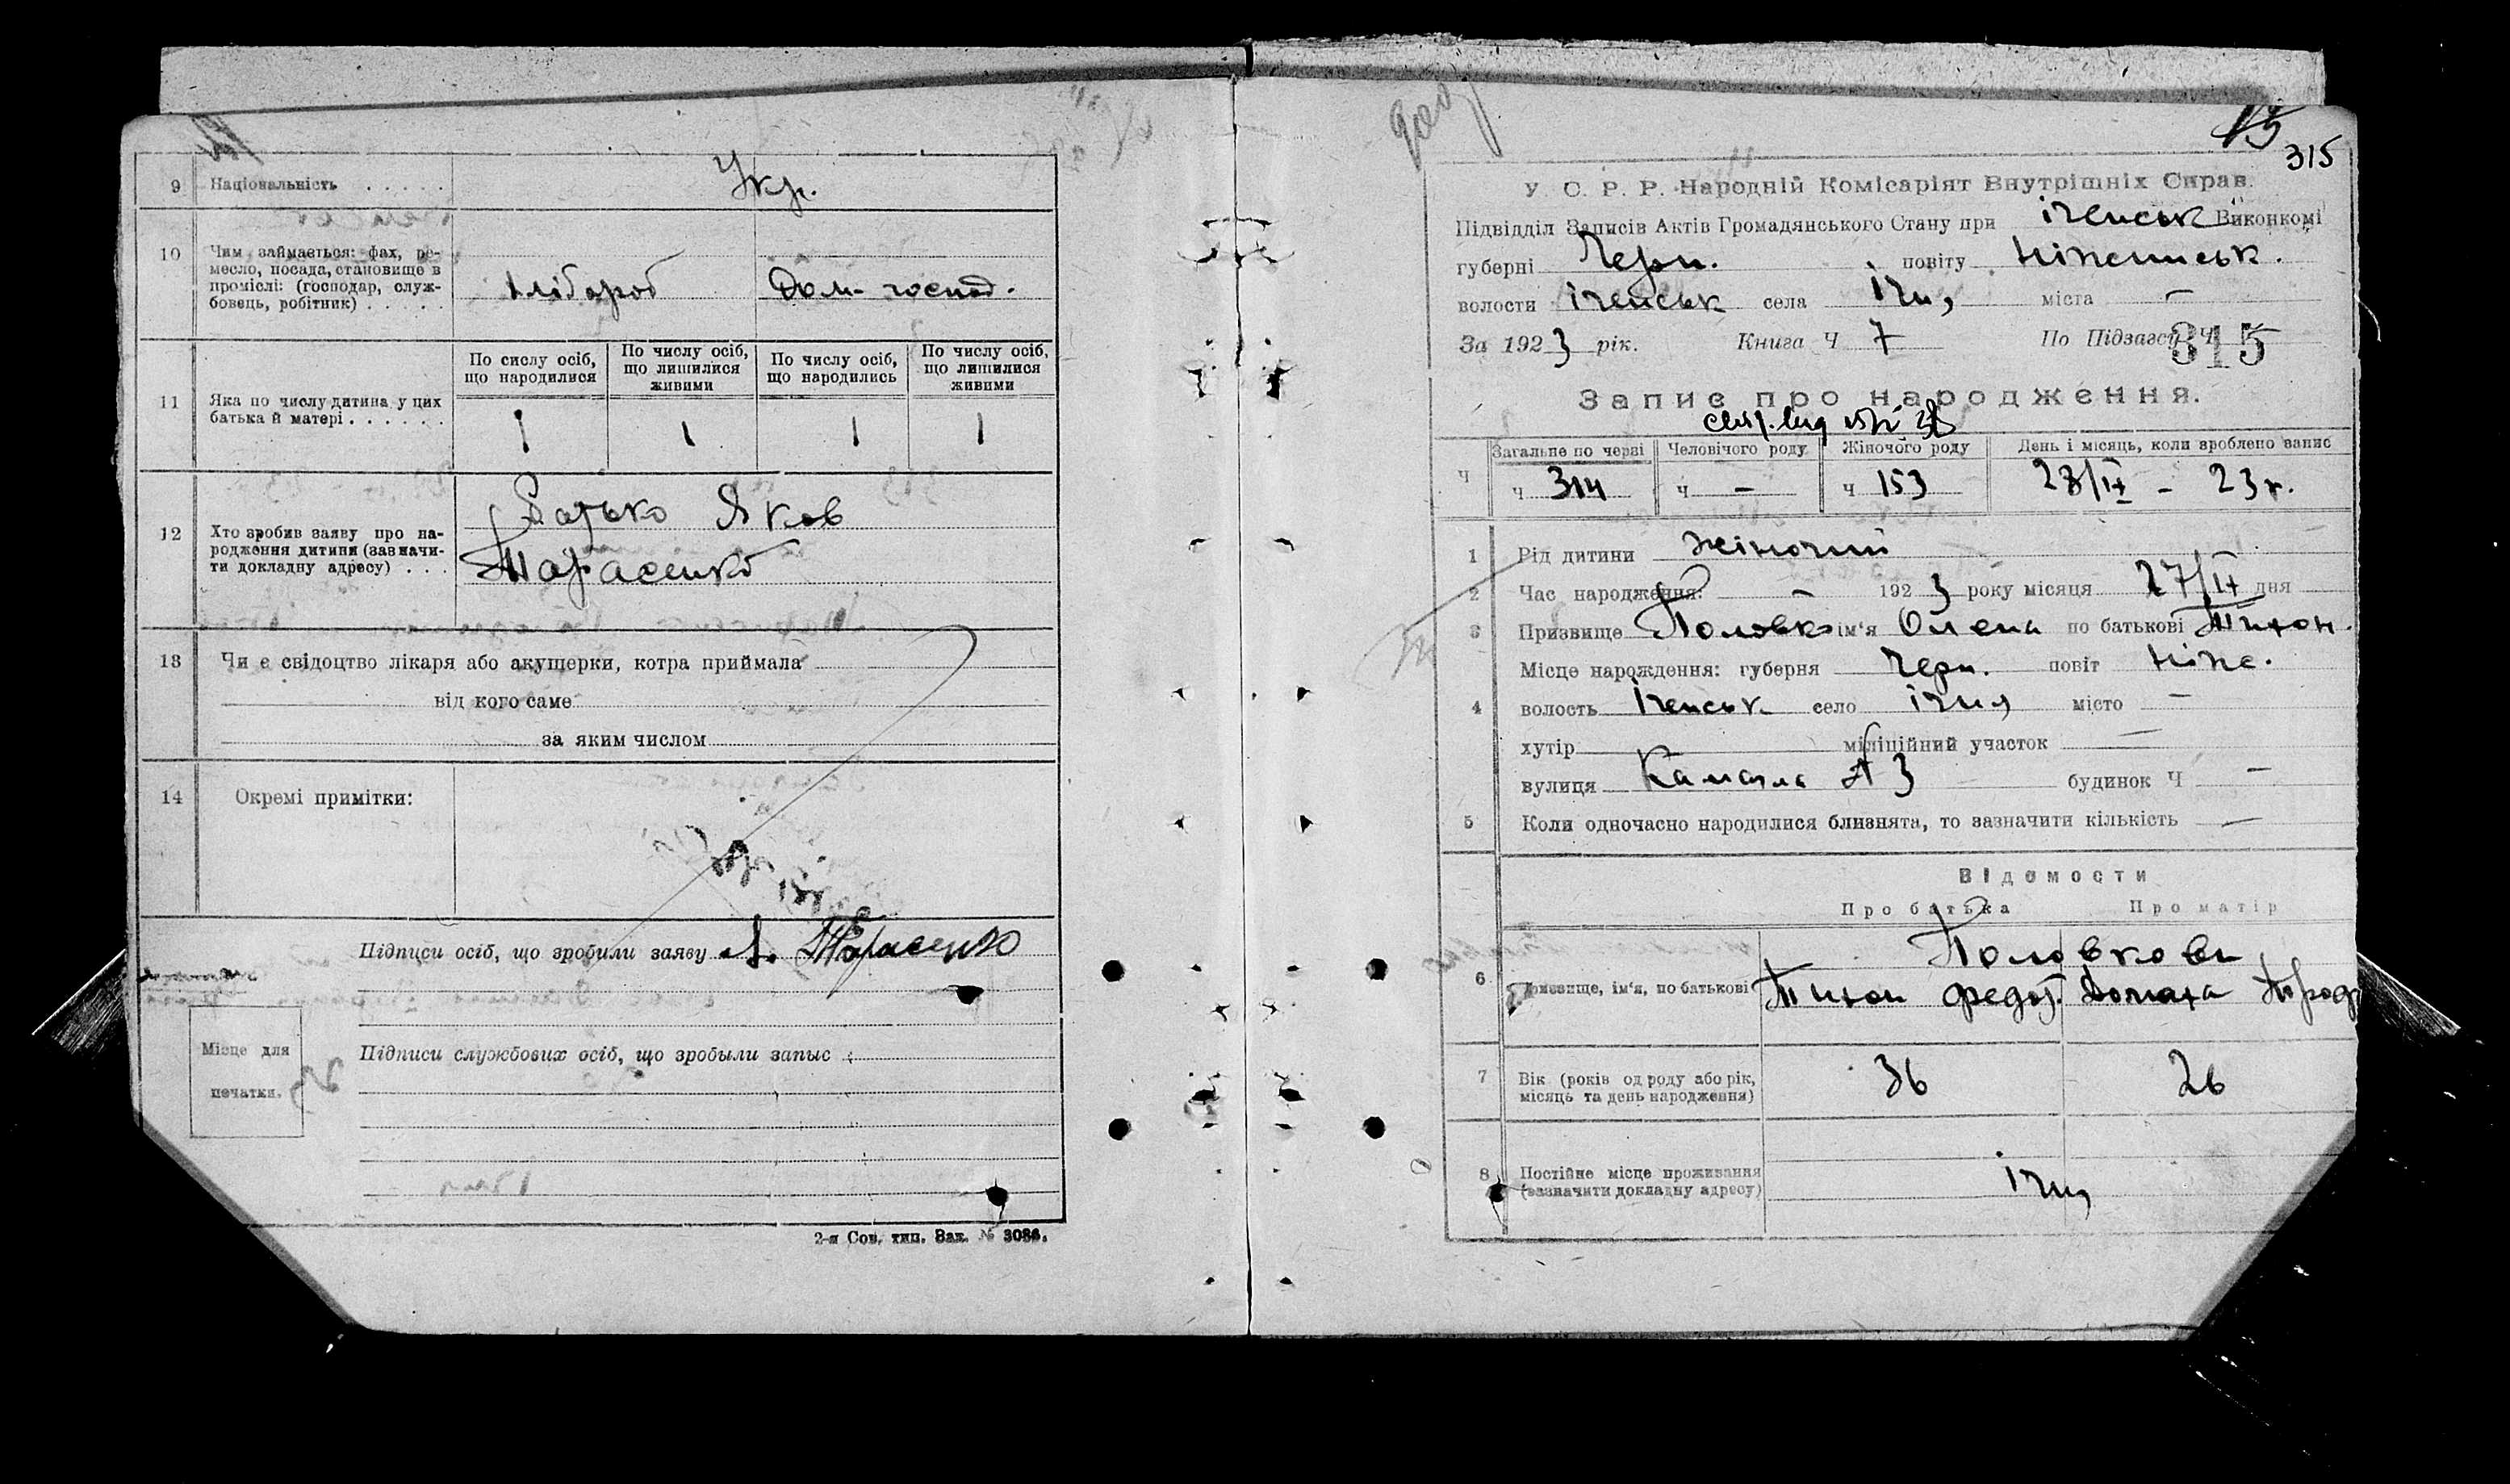 9 Національність . . . . . Укр.
10 Чим займається: фах, ре-
месло, посада, становище в
проміслі: (господар, служ-
бовець, робітник) . . . . .
Хлібороб Дом-господ.
11 Яка по числу дитина у цих
батька й матері . . . . . .
По сислу осіб, що народилися По числу осіб, що лишилися живими По числу осіб, що народились По числу осіб, що лишилися живими
1 1 1 1
12 Хто зробив заяву про на-
родження дитини (зазначи-
ти докладну адресу) . . .
Батько Яков
Тарасенко
13 Чи є свідоцтво лікаря або акушерки, котра приймала
від кого саме
за яким числом
14 Окремі примітки:
Підписи осіб, що зробили заяву Тарасенко
Місце для
печатки.
Підписи службових осіб, що зробыли запыс
2-я Сов. тип. Зак. № 3086.
315
У. С. Р. Р. Народній Комісаріят Внутрішніх Справ.
Підвідділ Записів Актів Громадянського Стану при Іченськ Виконкомі
губерні Черн. повіту Ніженськ.
волости Іченськ села Ічня міста —
За 1923 рік. Книга Ч 7 По Підзагсу Ч 315
Запис про народження.
Загальне по черзі Человічого роду Жіночого роду День і місяць, коли зроблено запис
Ч ч 314 ч — ч 153 28/IX - 23 г.
1 Рід дитини жіночий
2 Час народження: — 1923 року місяця 27/IX дня
3 Призвище Половко ім'я Олена по батькові Тихон.
Місце нарождення: губерня Черн. повіт Ніже.
4 волость Іченськ село Ічня місто —
хутір міліційний участок —
вулиця Камазла 3 будинок Ч —
5 Коли одночасно народилися близнята, то зазначити кількість —
Відомости
Про батька Про матір
Половкови
6 Призвище, ім'я, по батькові Тихон Федот. Домаха Прод
7 Вік (років од роду або рік,
місяць та день народження) 36 26
8 Постійне місце проживання
(зазначити докладну адресу) Ічня